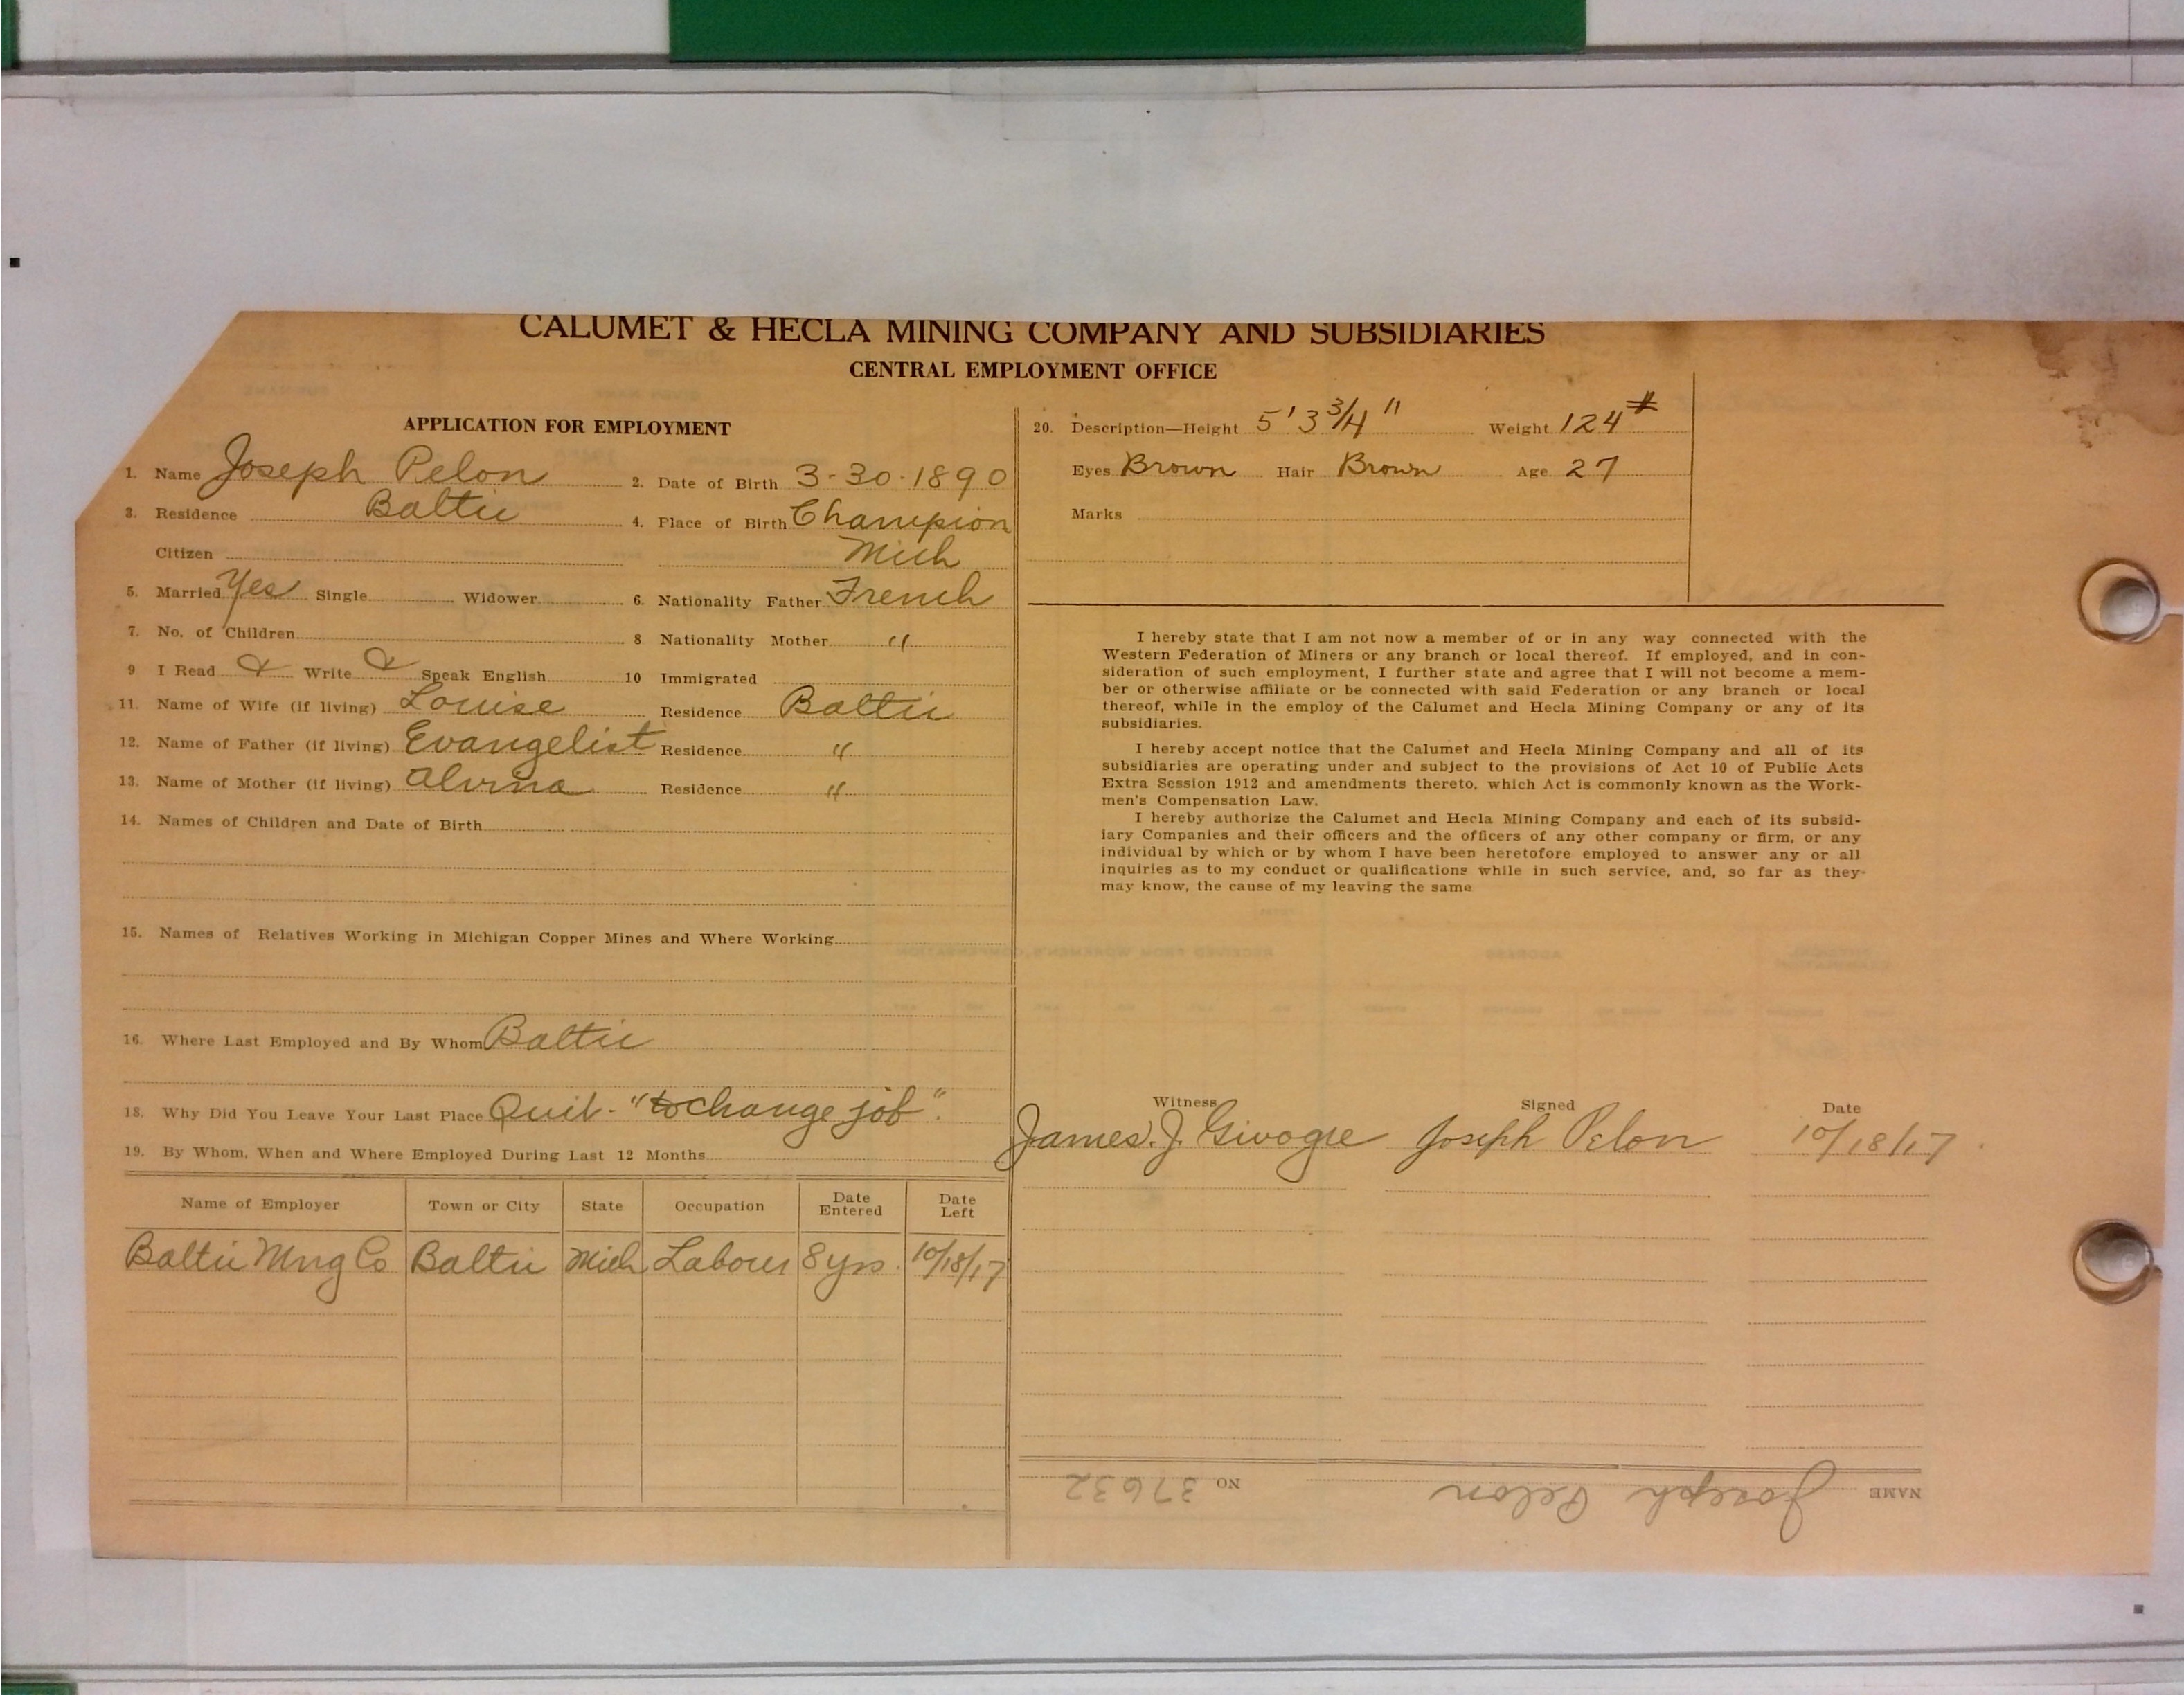 CALUMET & HECLA MINING COMPANY AND SUBSIDIARIES
CENTRAL EMPLOYMENT OFFICE
APPLICATION FOR EMPLOYMENT
1. Name Joseph Pelon 2. Date of Birth 3-30-1890
3. Residence Baltic 4. Place of Birth Champion
Citizen Mich
5. Married Yes Single Widower 6. Nationality Father French
7. No. of Children 8 Nationality Mother "
9 I Read & Write & Speak English 10 Immigrated
11. Name of Wife (if living) Louise Residence Baltic
12. Name of Father (if living) Evangelist Residence "
13. Name of Mother (if living) Alvina Residence "
14. Names of Children and Date of Birth
15. Names of Relatives Working in Michigan Copper Mines and Where Working
16. Where Last Employed and By Whom Baltic
18. Why Did You Leave Your Last Place Quit - "to change job".
19. By Whom, When and Where Employed During Last 12 Months
Name of Employer Town or City State Occupation Date Entered Date Left
Baltic Mng Co Baltic Mich Labour 8 yrs. 10/18/17
20. Description—Height 5' 3 3/4" Weight 124#
Eyes Brown Hair Brown Age 27
Marks
I hereby state that I am not now a member of or in any way connected with the
Western Federation of Miners or any branch or local thereof. If employed, and in con-
sideration of such employment, I further state and agree that I will not become a mem-
ber or otherwise affiliate or be connected with said Federation or any branch or local
thereof, while in the employ of the Calumet and Hecla Mining Company or any of its
subsidiaries.
I hereby accept notice that the Calumet and Hecla Mining Company and all of its
subsidiaries are operating under and subject to the provisions of Act 10 of Public Acts
Extra Session 1912 and amendments thereto, which Act is commonly known as the Work-
men's Compensation Law.
I hereby authorize the Calumet and Hecla Mining Company and each of its subsid-
iary Companies and their officers and the officers of any other company or firm, or any
individual by which or by whom I have been heretofore employed to answer any or all
inquiries as to my conduct or qualifications while in such service, and, so far as they
may know, the cause of my leaving the same
Witness Signed Date
James. J. Joseph Pelon 10/18/17
NAME Joseph Pelon NO 37632